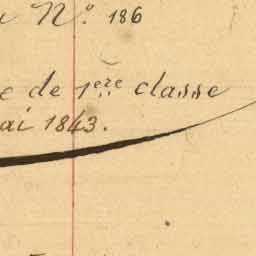 N.º 186
de 1ère classe
ai 1843.